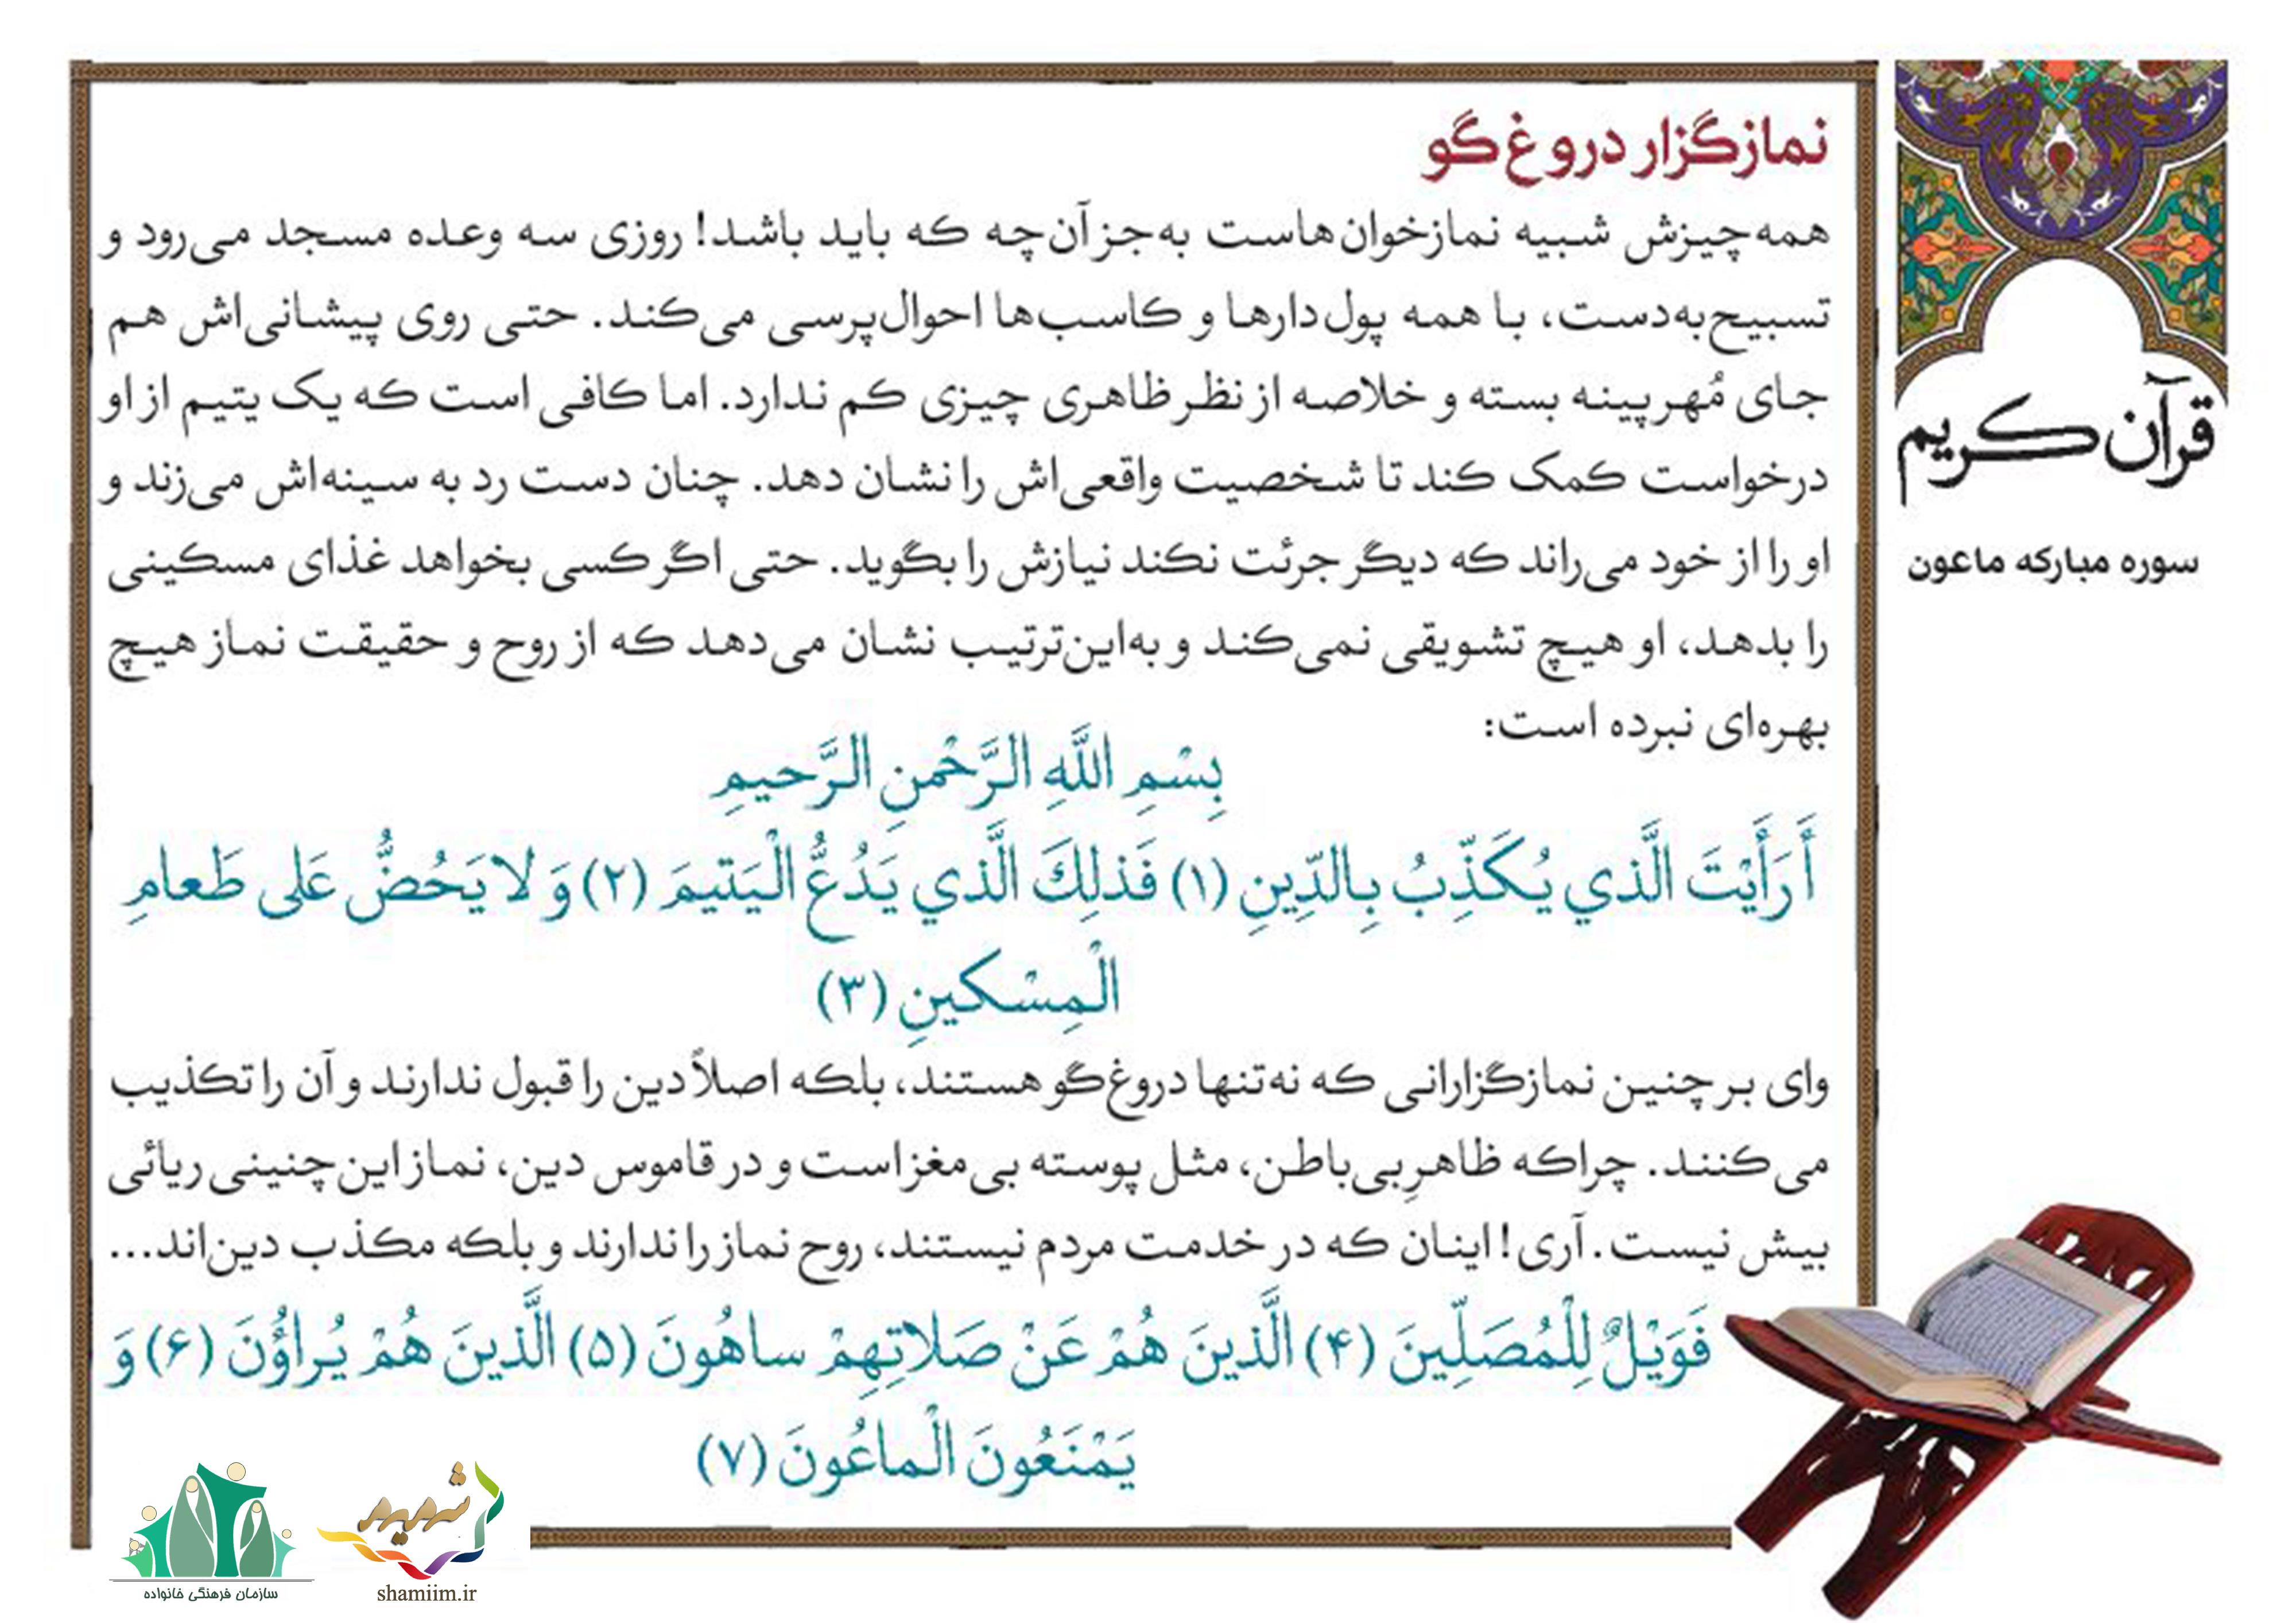 نمازگزار دروغ‌گو
همه‌چیزش شبیه نمازخوان‌هاست به‌جز آن‌چه که باید باشد! روزی سه وعده مسجد می‌رود و
تسبیح‌به‌دست، با همه پول‌دارها و کاسب‌ها احوال‌پرسی می‌کند. حتی روی پیشانی‌اش هم
جای مُهر پینه بسته و خلاصه از نظر ظاهری چیزی کم ندارد. اما کافی است که یک یتیم از او
درخواست کمک کند تا شخصیت واقعی‌اش را نشان دهد. چنان دست رد به سینه‌اش می‌زند و
او را از خود می‌راند که دیگر جرئت نکند نیازش را بگوید. حتی اگر کسی بخواهد غذای مسکینی
را بدهد، او هیچ تشویقی نمی‌کند و به‌این‌ترتیب نشان می‌دهد که از روح و حقیقت نماز هیچ
بهره‌ای نبرده است:
بِسْمِ اللَّهِ الرَّحْمنِ الرَّحیمِ
أَرَأَيْتَ الَّذي يُكَذِّبُ بِالدِّينِ (۱) فَذلِكَ الَّذي يَدُعُّ الْيَتيمَ (۲) وَ لا يَحُضُّ عَلى طَعامِ
الْمِسْكينِ (۳)
وای بر چنین نمازگزارانی که نه‌تنها دروغ‌گو هستند، بلکه اصلاً دین را قبول ندارند و آن را تکذیب
می‌کنند. چراکه ظاهرِ بی‌باطن، مثل پوسته بی‌مغز است و در قاموس دین، نماز این‌چنینی ریائی
بیش نیست. آری! اینان که در خدمت مردم نیستند، روح نماز را ندارند و بلکه مکذب دین‌اند...
فَوَيْلٌ لِلْمُصَلِّينَ (۴) الَّذينَ هُمْ عَنْ صَلاتِهِمْ ساهُونَ (۵) الَّذينَ هُمْ يُراؤُنَ (۶) وَ
يَمْنَعُونَ الْماعُونَ (۷)
قرآن کریم
سوره مبارکه ماعون
شمیم
shamiim.ir
سازمان فرهنگی خانواده